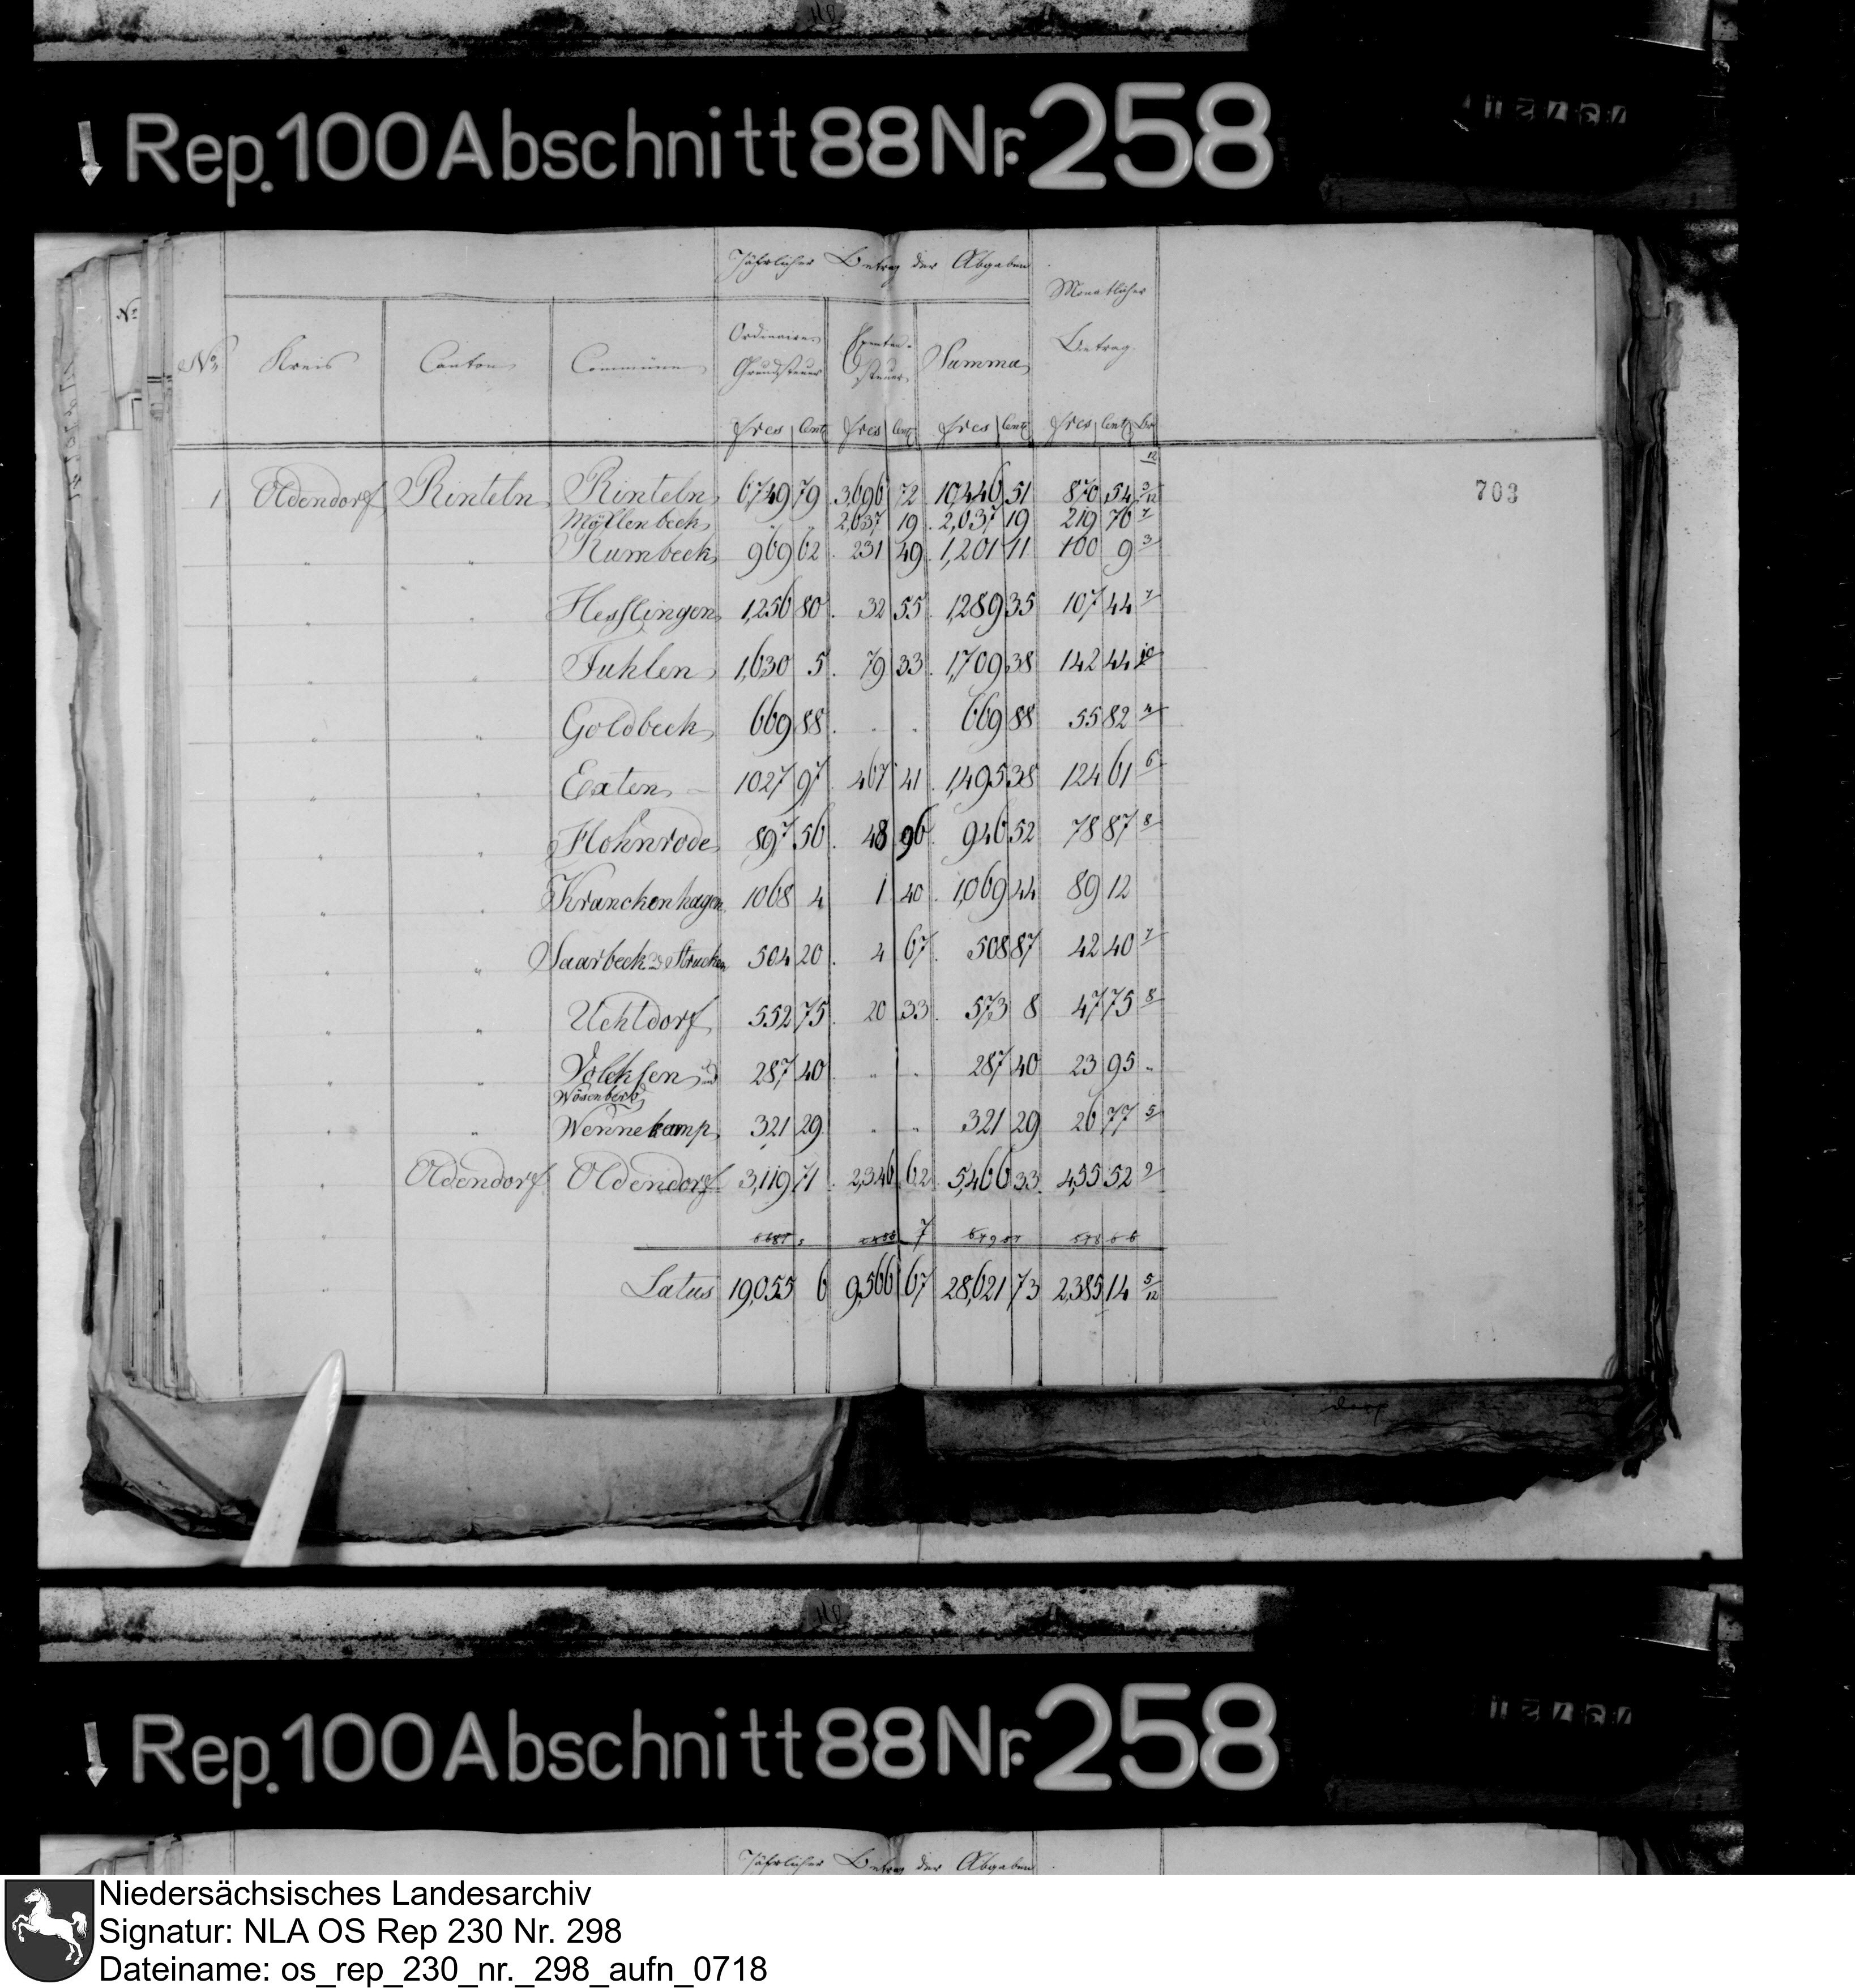 Rep. 100 Abschnitt 88 Nr. 258
Jährlicher Betrag der Abgaben
Monatlicher
Betrag.
No. Kreis Canton Commüne Ordinaire Grundsteuer Exemten-steuer Summa
frcs Cent frcs Cent frcs Cent frcs Cent
12
1 Oldendorf Rinteln Rinteln 6749 79 3,696 72 10,446 51 870 54 3/12
703
Möllenbeck " " 2,637 19 2,637 19 219 76 7
" " Rumbeck 969 62 231 49 1,201 11 100 9 3
" " Hesslingen 1,256 80 32 55 1,289 35 107 44 7
" " Fuhlen 1,630 5 79 33 1,709 38 142 44 10
" " Goldbeck 669 88 " " 669 88 55 82 4
" " Exten 1027 97 467 41 1,495 38 124 61 6
" " Hohnrode 897 56 48 96 946 52 78 87 8
" " Kranckenhagen 1068 4 1 40 1,069 44 89 12
" " Saarbeck u Strucken 504 20 4 67 508 87 42 40 7
" " Uchtdorf 552 75 20 33 573 8 47 75 8
" " Volcksen und 287 40 " " 287 40 23 95 "
Wösenberg
" " Wennekamp 321 29 " " 321 29 26 77 5
" Oldendorf Oldendorf 3,119 71 2,346 62 5,466 33 455 52 9
7
" Latus 19,055 6 9,566 67 28,621 73 2,385 14 5/12
Rep. 100 Abschnitt 88 Nr. 258
Jährlicher Betrag der Abgaben
Niedersächsisches Landesarchiv
Signatur: NLA OS Rep 230 Nr. 298
Dateiname: os_rep_230_nr._298_aufn_0718